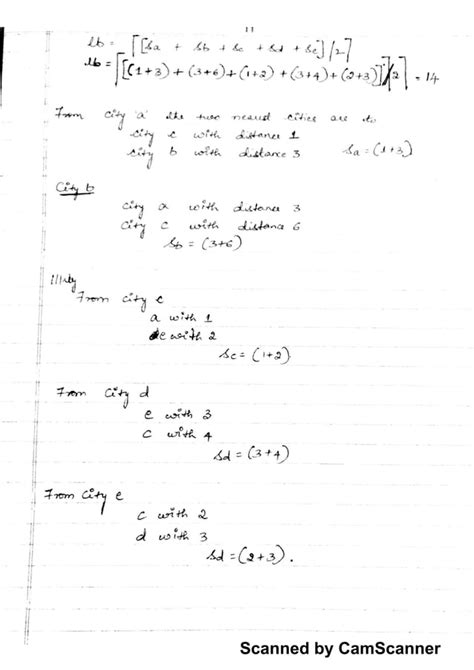 11
lb = ⌈[Sa + Sb + Sc + Sd + Se]/2⌉
lb = ⌈[(1+3) + (3+6) + (1+2) + (3+4) + (2+3)]/2⌉ = 14
From city 'a' the two nearest cities are to
city c with distance 1
city b with distance 3 Sa = (1+3)
City b
city a with distance 3
city c with distance 6
Sb = (3+6)
Illrly
From city c
a with 1
e with 2
Sc = (1+2)
From city d
e with 3
c with 4
Sd = (3+4)
From city e
c with 2
d with 3
Sd = (2+3).
Scanned by CamScanner